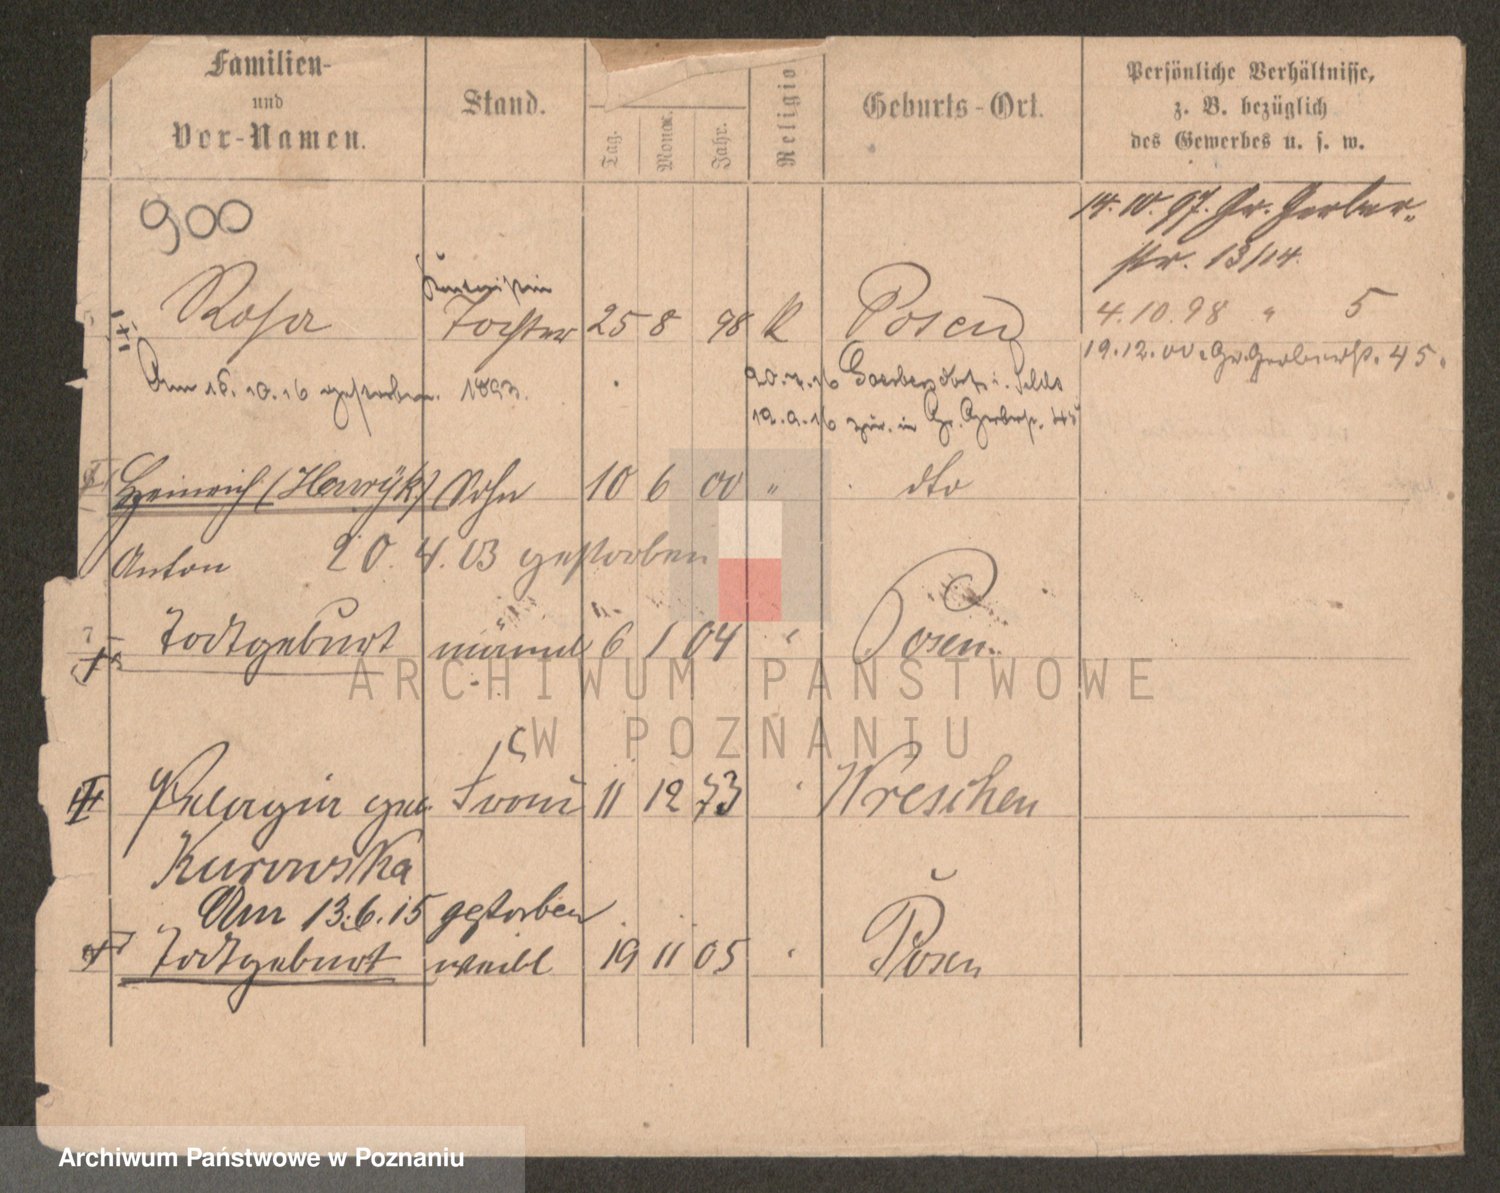 Familien-
und
Vor-Namen.
Stand.
Tag.
Monat.
Jahr.
Religio
Geburts-Ort.
Persönliche Verhältnisse,
z. B. bezüglich
des Gewerbes u. s. w.
900
14. 10. 97. Gr. Gerber-
str. 13/14.
Rosa Tochter 25 8 98 K Posen
4.10.98 " 5
19.12.00. Gr. Gerberstr. 45.
Am 16.10.16 gestorben. 1893.
20.7.16
12.9.16 zur. in Gr. Gerberstr. 45
Heinrich (Henryk) Sohn 10 6 00 " dto
Anton 20.4.03 gestorben
Todtgeburt männl 6 1 04 " Posen.
Pelagia geb. Frau 11 12 73 " Wreschen
Kurowska
Am 13.6.15 gestorben
Todtgeburt weibl 19 11 05 " Posen
ARCHIWUM PAŃSTWOWE
W POZNANIU
Archiwum Państwowe w Poznaniu